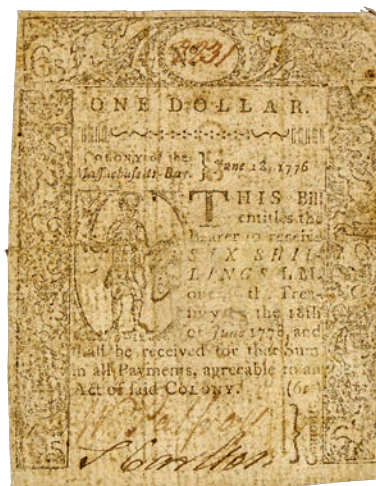 6s
8231
ONE DOLLAR.
COLONY of the
Massachusetts-Bay.
June 18, 1776
THIS Bill
entitles the
bearer to receive
SIX SHIL-
LINGS L.M.
out of the Trea-
sury by the 18th
of June 1778, and
shall be received for that Sum
in all Payments, agreeable to an
Act of said COLONY. (6s.)